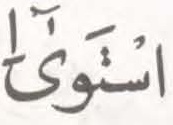 اسْتَوَىٰٓ ا